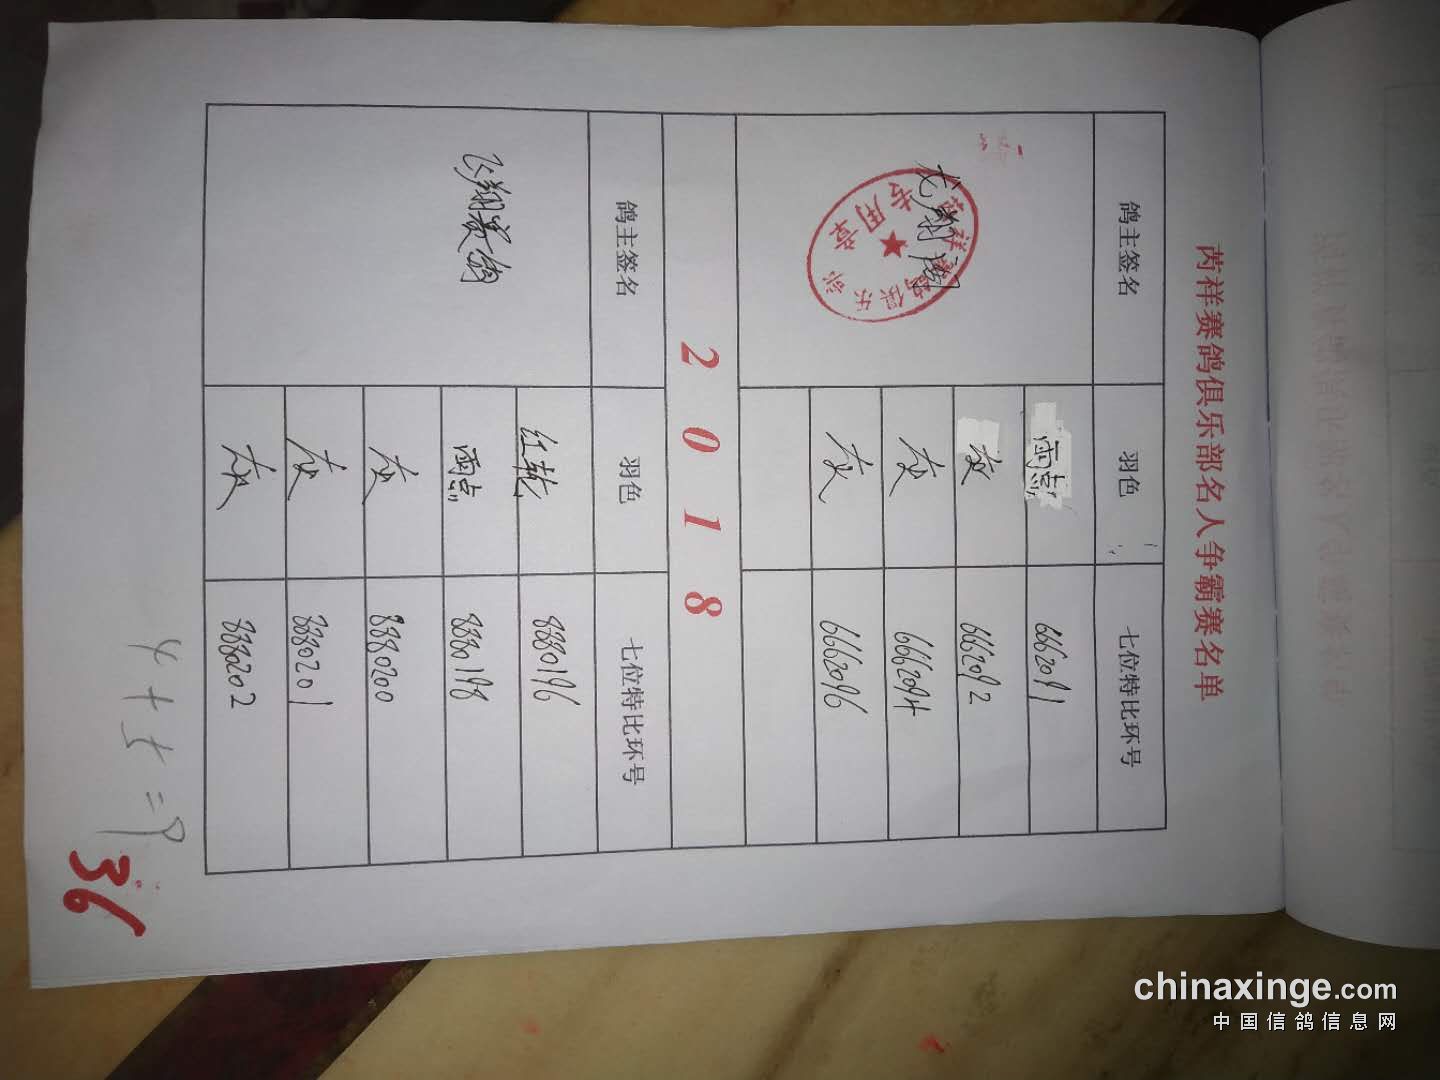 芮祥赛鸽俱乐部名人争霸赛名单
鸽主签名 羽色 七位特比环号
龙翔阁 雨点 6662091
灰 6662092
灰 6662094
灰 6662096
专用章
2018
鸽主签名 羽色 七位特比环号
飞翔赛鸽 红轮 8880196
雨点 8880198
灰 8880200
灰 8880201
灰 8880202
4+5=9
36
chinaxinge.com
中国信鸽信息网